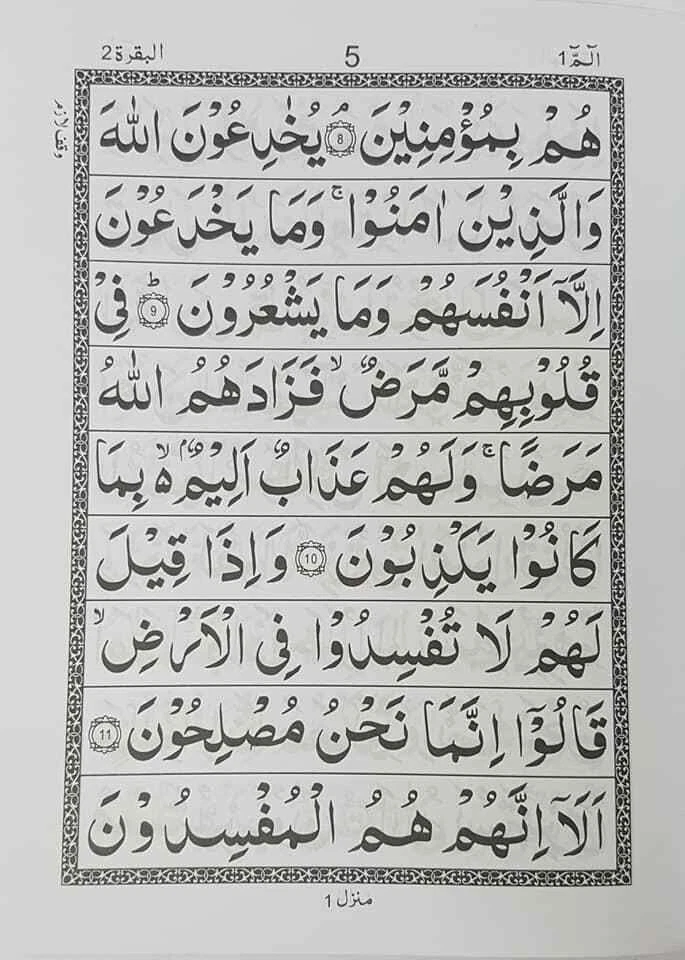 الٓمّٓ 1 5 البقرة 2
هُمْ بِمُؤْمِنِيْنَ ۘ 8 يُخٰدِعُوْنَ اللهَ
وقف لازم
وَالَّذِيْنَ اٰمَنُوْا ۚ وَمَا يَخْدَعُوْنَ
اِلَّاۤ اَنْفُسَهُمْ وَمَا يَشْعُرُوْنَ ؕ 9 فِيْ
قُلُوْبِهِمْ مَّرَضٌ ۙ فَزَادَهُمُ اللهُ
مَرَضًا ۚ وَلَهُمْ عَذَابٌ اَلِيْمٌۢ ۵ ۙ بِمَا
كَانُوْا يَكْذِبُوْنَ 10 وَاِذَا قِيْلَ
لَهُمْ لَا تُفْسِدُوْا فِى الْاَرْضِ ۙ
قَالُوْۤا اِنَّمَا نَحْنُ مُصْلِحُوْنَ 11
اَلَاۤ اِنَّهُمْ هُمُ الْمُفْسِدُوْنَ
منزل 1